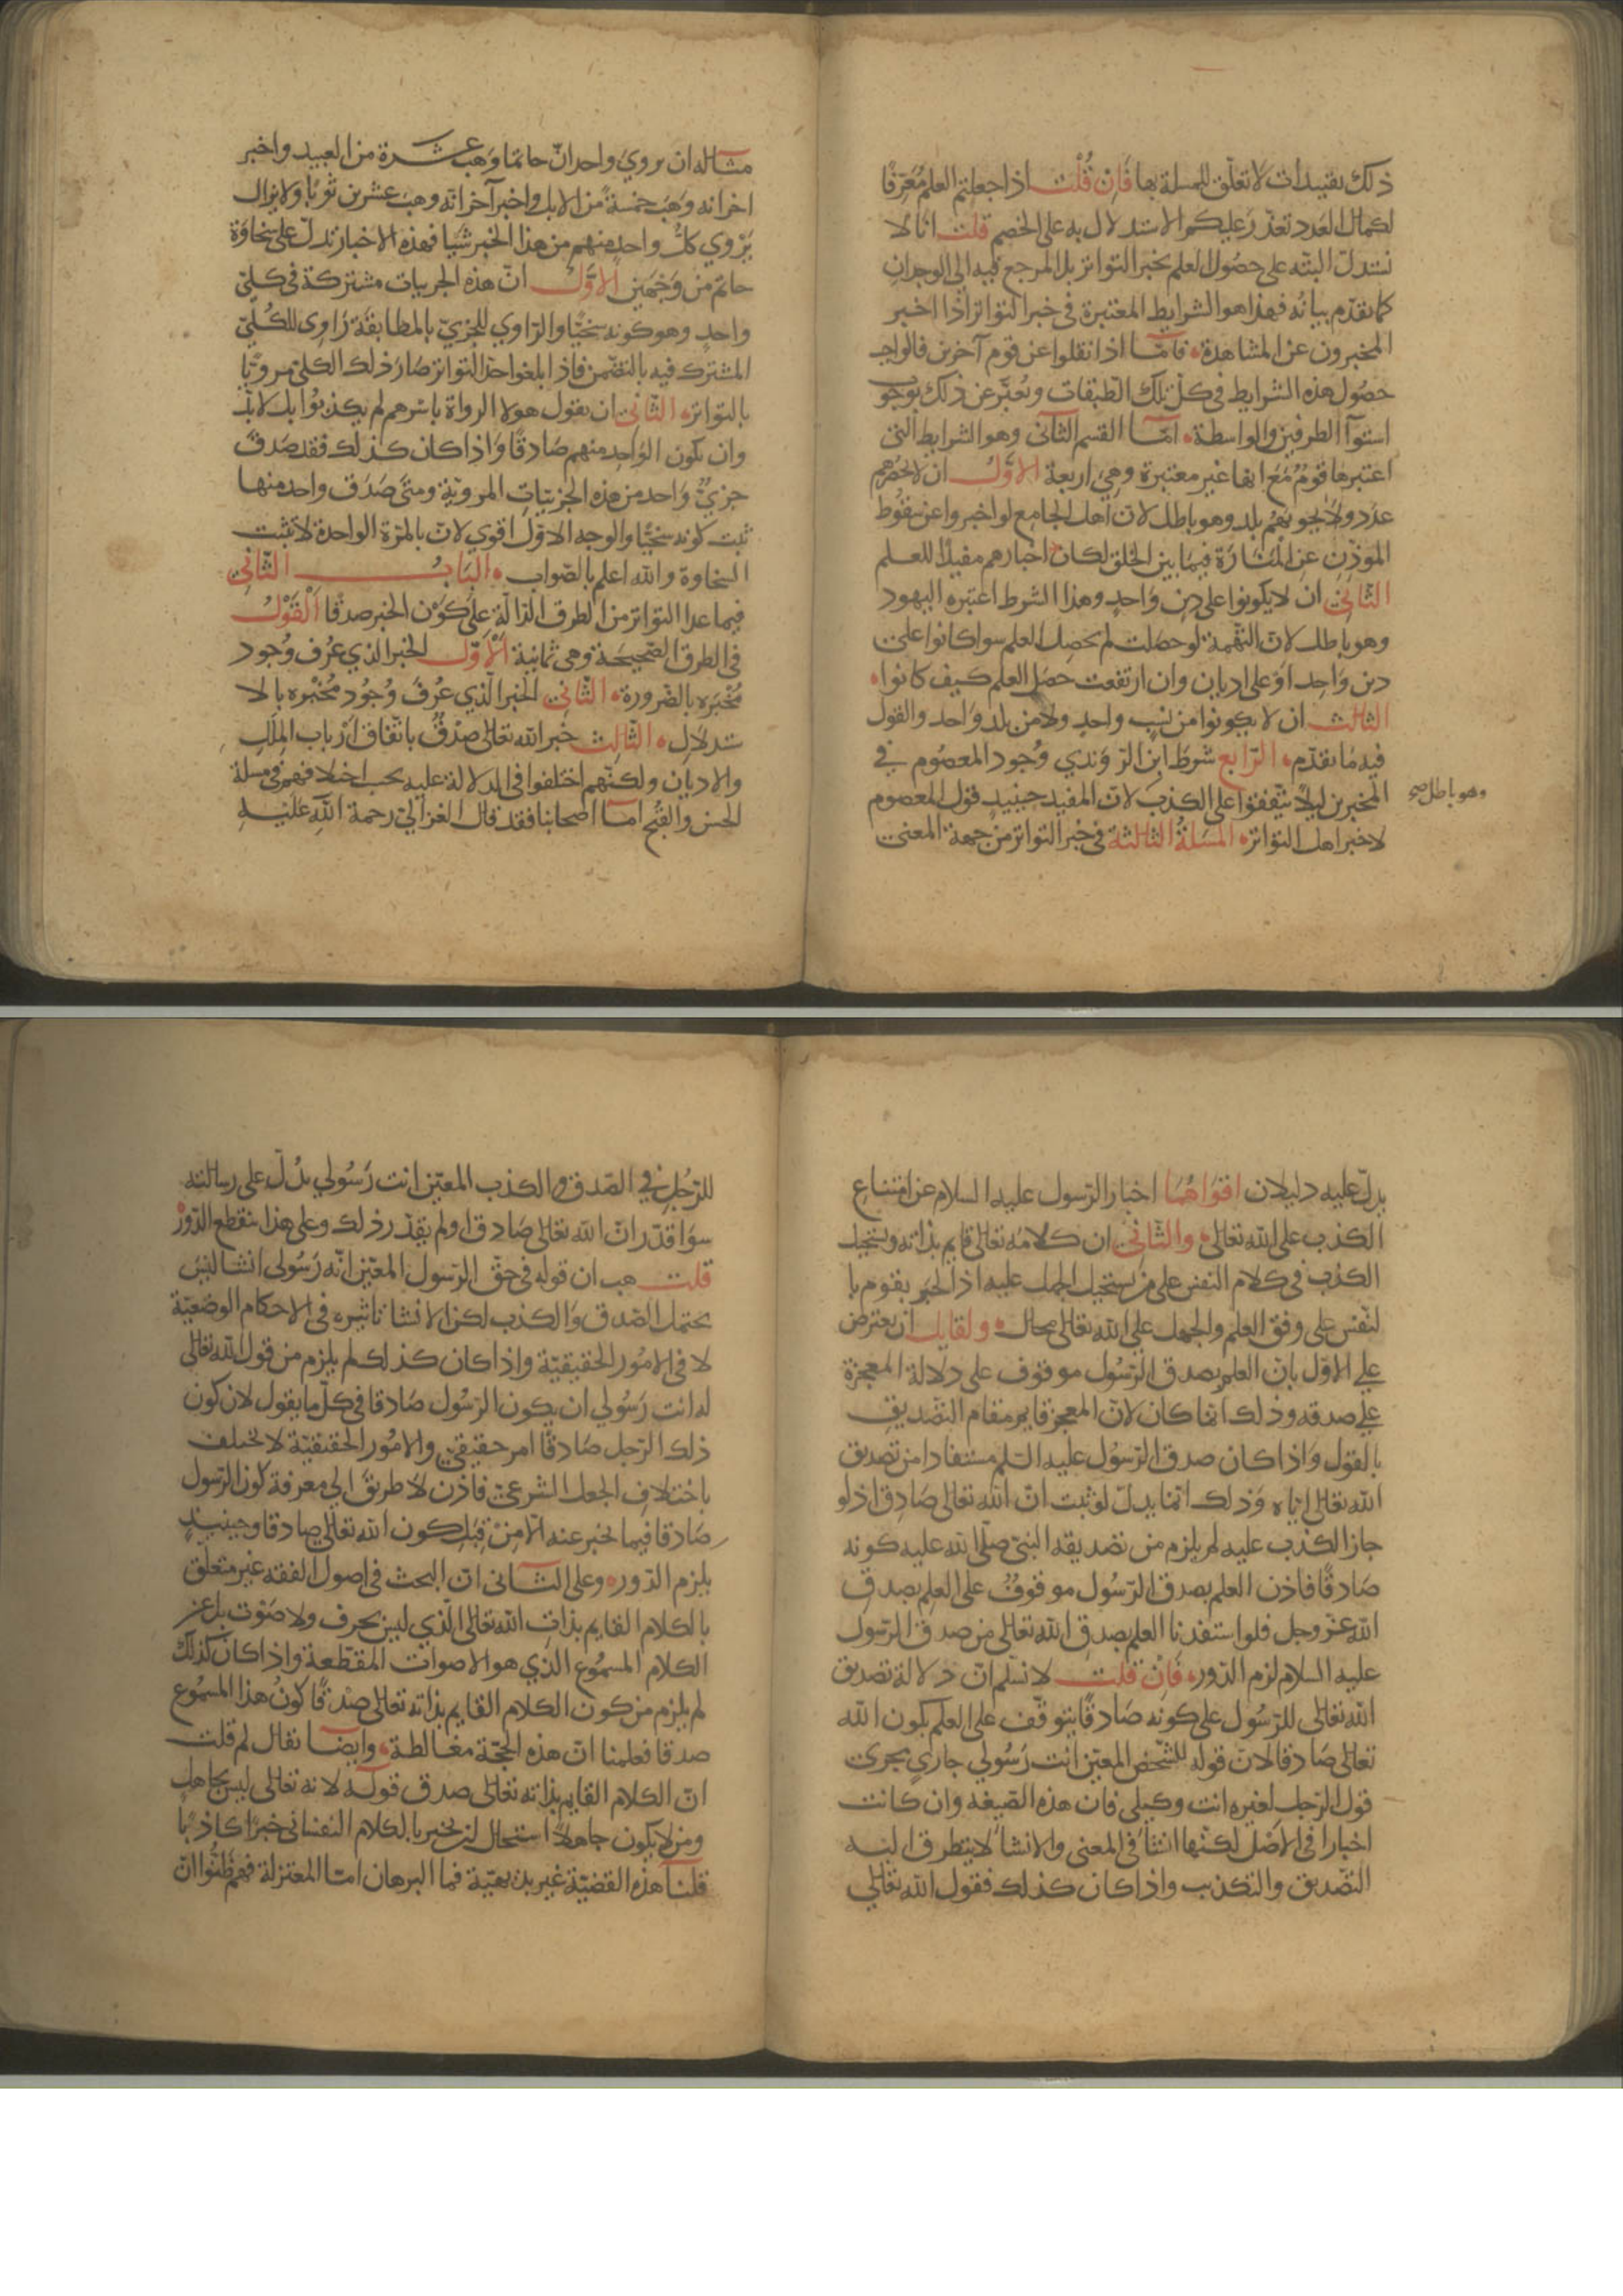 ذلك تقييدات لا تعلق للمسلة بها فَاِن قُلْت اذا جعلتم العلم مُعَرِّفًا
لكمال العَدد تعذّر عَليكم الاستدلال به على الخصم قلت انا لا
نستدلّ البتّه على حصُول العلم بخبر التواتر بل المرجع فيه الى الوجدان
كما تقدّم بيانُه فهذا هو الشرايط المعتبرة في خبر التواتر اذا اخبر
المخبرون عن المشاهدة فامّا اذا نقلوا عن قوم آخرين فالواجب
حصُول هذه الشرايط في كلّ تلك الطبقات ويُعَبّر عن ذلك بوجوب
استوآ الطرفين والواسطة امّا القسم الثانى وهو الشرايط التى
اعتبرها قومٌ مَعَ انها غير معتبرة وهى اربعة الاوّل ان لا يحصُرهم
عدَد ولا يحويهُم بلد وهو باطل لانّ اهل الجامع لو اخبروا عن سقوُط
الموَذّن عن المَنَارَة فيمَا بين الخلق لكان اخبارهم مفيدًا للعلم
الثانى ان لا يكونوا على دين وَاحدٍ وهذا الشرط اعتبره اليهود
وهو باطل لانّ التهمة لو حصَلت لم يحصِل العلم سوا كانوا على
دين وَاحِد اوَ على اديان وان ارتفعت حصَل العلم كيف كانوا
الثالث ان لا يكونوا من نسَب واحدٍ ولا من بلد وَاحد والقول
فيه مَا تقدّم الرّابع شرطَ ابن الرّوَندي وُجود المعصُوم في
المخبرين ليلّا يتّفقوا على الكذبَ لانّ المفيد حينيدٍ قوَل المعصوم
وهو باطل صح
لا خبر اهل التواتر المسَلةُ الثالثة في خبر التواتر من جهة المعنى
مثاله ان يروىَ واحد انّ حاتما وَهَبَ عشرة من العبيد واخبر
اخر انه وَهَبَ خمسةً من الابل واخبر آخر انّه وهبَ عشرين ثوبًا ولا يزال
يَرْوي كلُّ واحدٍ منهم من هذا الخبر شيا فهذه الاخبار تدلّ على سَخاوَة
حاتم من وَجْهَين الاوّل انّ هذه الجزييات مشتركة في كلىّ
واحدٍ وهو كونه سخيّا والرّاوي للجزئىّ بالمطابقَة رَاوٍى للكُلّىّ
المشترك فيه بالتضمن فاذا بلغوا حدّ التواتر صَارَ ذلك الكلىّ مرويّا
بالتواتر الثانى ان يقول هولا الرواة باسرهم لم يكذبوُا بل لا بدّ
وان يكون الوَاحِد منهم صَادقًا وَاذا كان كذلك فقد صَدق
جزيٌ وَاحد من هذه الجزئياتِ المرويّة ومتَى صَدَق واحد منها
ثبت كونه سخيّا والوجه الاوّل اقوي لانّ بالمرّة الواحدة لا تثبت
السخاوة والله اعلم بالصّواب البَابُ الثّانىِ
فيما عدا التواتر من الطرق الدّالّة عَلى كَوَن الخبر صدقًا اَلْقَوْلُ
فى الطرق الصَّحيحَة وهى ثمانية الْاَوّل الخبر الذي عُرْف وُجود
مُخْبَره بالضرورة الثّانى الخبر الّذي عُرفَ وُجُود مُخْبَره بالا
ستدلال الثّالِث خَبر الله تعَالى صِدْقٌ باتّفاق اَرْباب المِلَلِ
والاديان ولكنّهم اختلفوا فى الدلالة عليه بحسب اختلافهم في مسلة
الحسن والقبُح امّا اصحابنا فقد قال الغزالىّ رحمة اللهِ عليه
يدلّ عليه دليلان اقوَاهُمَا اخبار الرّسول عليه السلام عن امتناع
الكذب على الله تعالى والثّانى ان كلامه تعالى قايم بذاته ويستحيل
الكذب فى كلام النفس على من يستحيل الجهل عليه اذ الخبر يقوم با
لنّفس على وفق العلم والجهل على الله تعالى محال ولقايل ان يعترض
علي الاوّل بانّ العلم بصدق الرّسُول موقوف على دلالة المعجزة
علي صدقه وذلك انّما كان لانّ المعجز قايم مقام التّصديق
بالقول وَاذا كان صدق الرّسوُل عليه السّلم مستفادا من تصديق
الله تعالى ايّاه وَذلك انّما يدلّ لو ثبت انّ اللّه تعَالى صَادِق اذ لو
جاز الكذب عليه لم يلزم من تصديقه النبىّ صلى الله عليه كونه
صَادقًا فاذن العلم بصدق الرّسُول موقوفٌ على العلم بصدق
الله عزّ وجل فلو استفدنا العلم بصدق الله تعالى من صدق الرّسول
عليه السلام لزم الدّور فَاِنْ قلت لا نسَلّم انّ دلالة تصديق
الله تعَالى للرّسُول على كونه صَادقًا يتوقّف على العلم بكون اللّه
تعالى صَادقا لانّ قوله للشّخص المعيّن انت رَسُولي جارٍي مجرى
قول الرّجل لغيره انت وكيلى فان هذه الصّيغة وان كانت
اخبارا فى الاصْل لكنّها انشَا فى المعنى والانشا لا يتطرق اليه
التّصديق والتكذيب واذا كان كذلك فقول الله تعَالي
للرّجُلِ في الصّدق والكذب المعيّن انت رَسُولي يدُلّ على رسالته
سوَا قدّر انّ الله تعَالى صَادق او لم يقدّر ذلك وعلى هذا ينقطع الدّوُر
قلت هب ان قولهُ في حقّ الرّسول المعيّن انّه رَسُولى انشا ليسَ
يحتمل الصّدق وَالكذب لكن الانشا تاثيره فى الاحكام الوضعيّة
لا فى الامُور الحقيقيّة واذا كان كذلك لم يلزم من قول الله تعالى
له انت رَسُولي ان يكون الرّسُول صَادقا فى كلّ ما يقول لان كون
ذلك الرّجل صَادقًا امر حقيقىّ والامُور الحقيقيّة لا تختلف
باختلافِ الجعل الشرعىّ فاذن لا طريقَ الي معرفة كون الرّسول
صَادقا فيما يخبر عنه الّا مِنْ قِبَلِ كون الله تعَالى صَادقا وحينيدٍ
يلزم الدّور وعلى الثانى انّ البحث فى اصول الفقه غير متعلق
بالكلام القايم بذاتِ الله تعالى الّذي ليس بحرف ولا صَوْت بل عن
الكلام المسموُع الذي هو الاصوات المقطّعة واذا كان كذلك
لم يلزم من كون الكلام القايم بذاته تعالى صِدْقًا كون هذا المسموُع
صدقا فعلمنا انّ هذه الحجّة مغالطة وايضا يقال لم قلت
انّ الكلام القايم بذاته تعَالى صدق قولَهُ لانه تعالى ليس بجاهل
ومن لا يكون جاهلًا استحال ان يخبر بالكلام النفسَانى خبرًا كاذبًا
قلنا هذه القضيّة غير بديهيّة فما البرهان امّا المعتزلة فهم ظنُّوا انّ